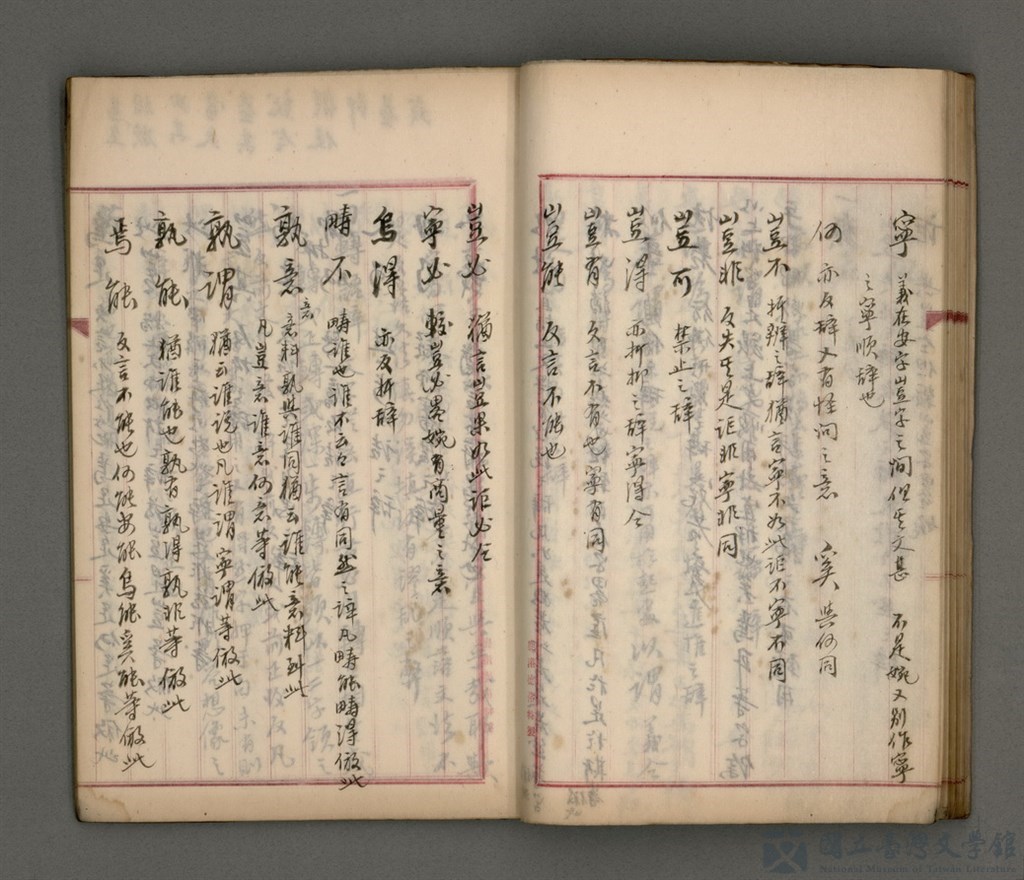 寧 義在安字豈字之間但其文甚 不足婉又別作寧
之寧順辞也
何 亦反辞又有怪问之意 奚 與何同
豈不 折辦之辞猶言寧不如此詎不寧不同
豈非 反失其是詎非寧非同
豈可 禁止之辞
豈得 亦折抑之辞寧得仝
豈有 反言不有也寧有同
豈能 反言不能也
豈必 猶言豈果如此詎必仝
寧必 較豈必畧婉有商量之意
烏得 亦反折辞
疇不 疇誰也誰不云々言有同然之辞凡疇能疇得倣此
孰意 意料孰與誰同猶云誰能意料到此
凡豈意誰意何意等倣此
孰謂 猶云誰说也凡誰謂寧謂等倣此
孰能 猶誰能也孰有孰得孰非等倣此
焉能 反言不能也何能安能烏能奚能等倣此
國立臺灣文學館
National Museum of Taiwan Literature